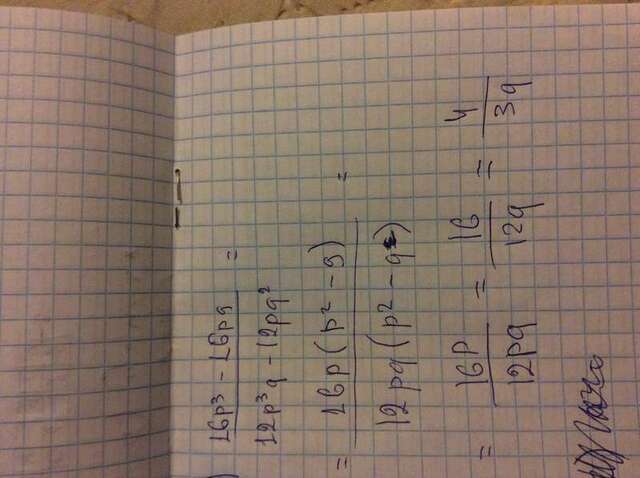 ) 16p³ - 16pq / 12p³q - 12pq² =
= 16p(p² - q) / 12pq(p² - q) =
= 16p / 12pq = 16 / 12q = 4 / 3q